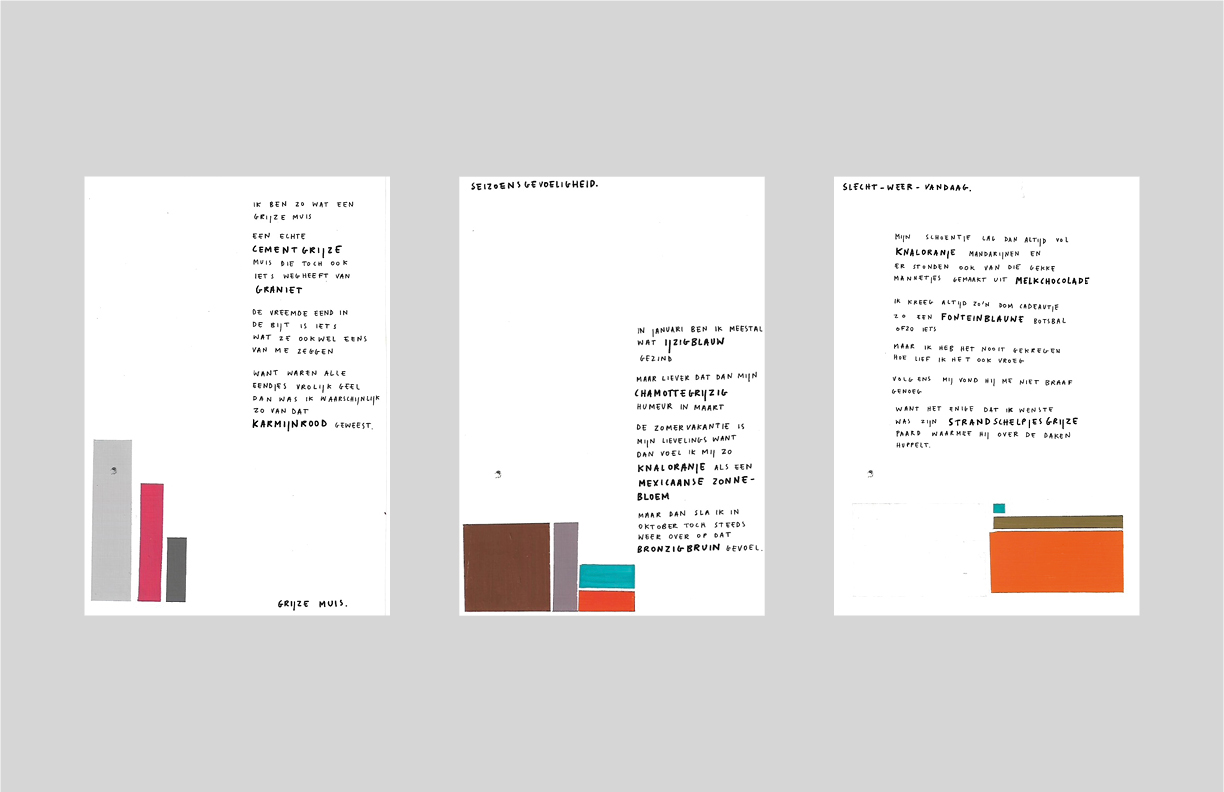 IK BEN ZO WAT EEN
GRIJZE MUIS
EEN ECHTE
CEMENTGRIJZE
MUIS DIE TOCH OOK
IETS WEGHEEFT VAN
GRANIET
DE VREEMDE EEND IN
DE BIJT IS IETS
WAT ZE OOKWEL EENS
VAN ME ZEGGEN
WANT WAREN ALLE
EENDJES VROLIJK GEEL
DAN WAS IK WAARSCHIJNLIJK
ZO VAN DAT
KARMIJNROOD GEWEEST.
GRIJZE MUIS.
SEIZOENSGEVOELIGHEID.
IN JANUARI BEN IK MEESTAL
WAT IJZIGBLAUW
GEZIND
MAAR LIEVER DAT DAN MIJN
CHAMOTTEGRIJZIG
HUMEUR IN MAART
DE ZOMERVAKANTIE IS
MIJN LIEVELINGS WANT
DAN VOEL IK MIJ ZO
KNALORANJE ALS EEN
MEXICAANSE ZONNE-
BLOEM
MAAR DAN SLA IK IN
OKTOBER TOCH STEEDS
WEER OVER OP DAT
BRONZIGBRUIN GEVOEL.
SLECHT-WEER-VANDAAG.
MIJN SCHOENTJE LAG DAN ALTIJD VOL
KNALORANJE MANDARIJNEN EN
ER STONDEN OOK VAN DIE GEKKE
MANNETJES GEMAAKT UIT MELKCHOCOLADE
IK KREEG ALTIJD ZO'N DOM CADEAUTJE
ZO EEN FONTEINBLAUWE BOTSBAL
OFZO IETS
MAAR IK HEB HET NOOIT GEKREGEN
HOE LIEF IK HET OOK VROEG
VOLGENS MIJ VOND HIJ ME NIET BRAAF
GENOEG
WANT HET ENIGE DAT IK WENSTE
WAS ZIJN STRANDSCHELPJESGRIJZE
PAARD WAARMEE HIJ OVER DE DAKEN
HUPPELT.